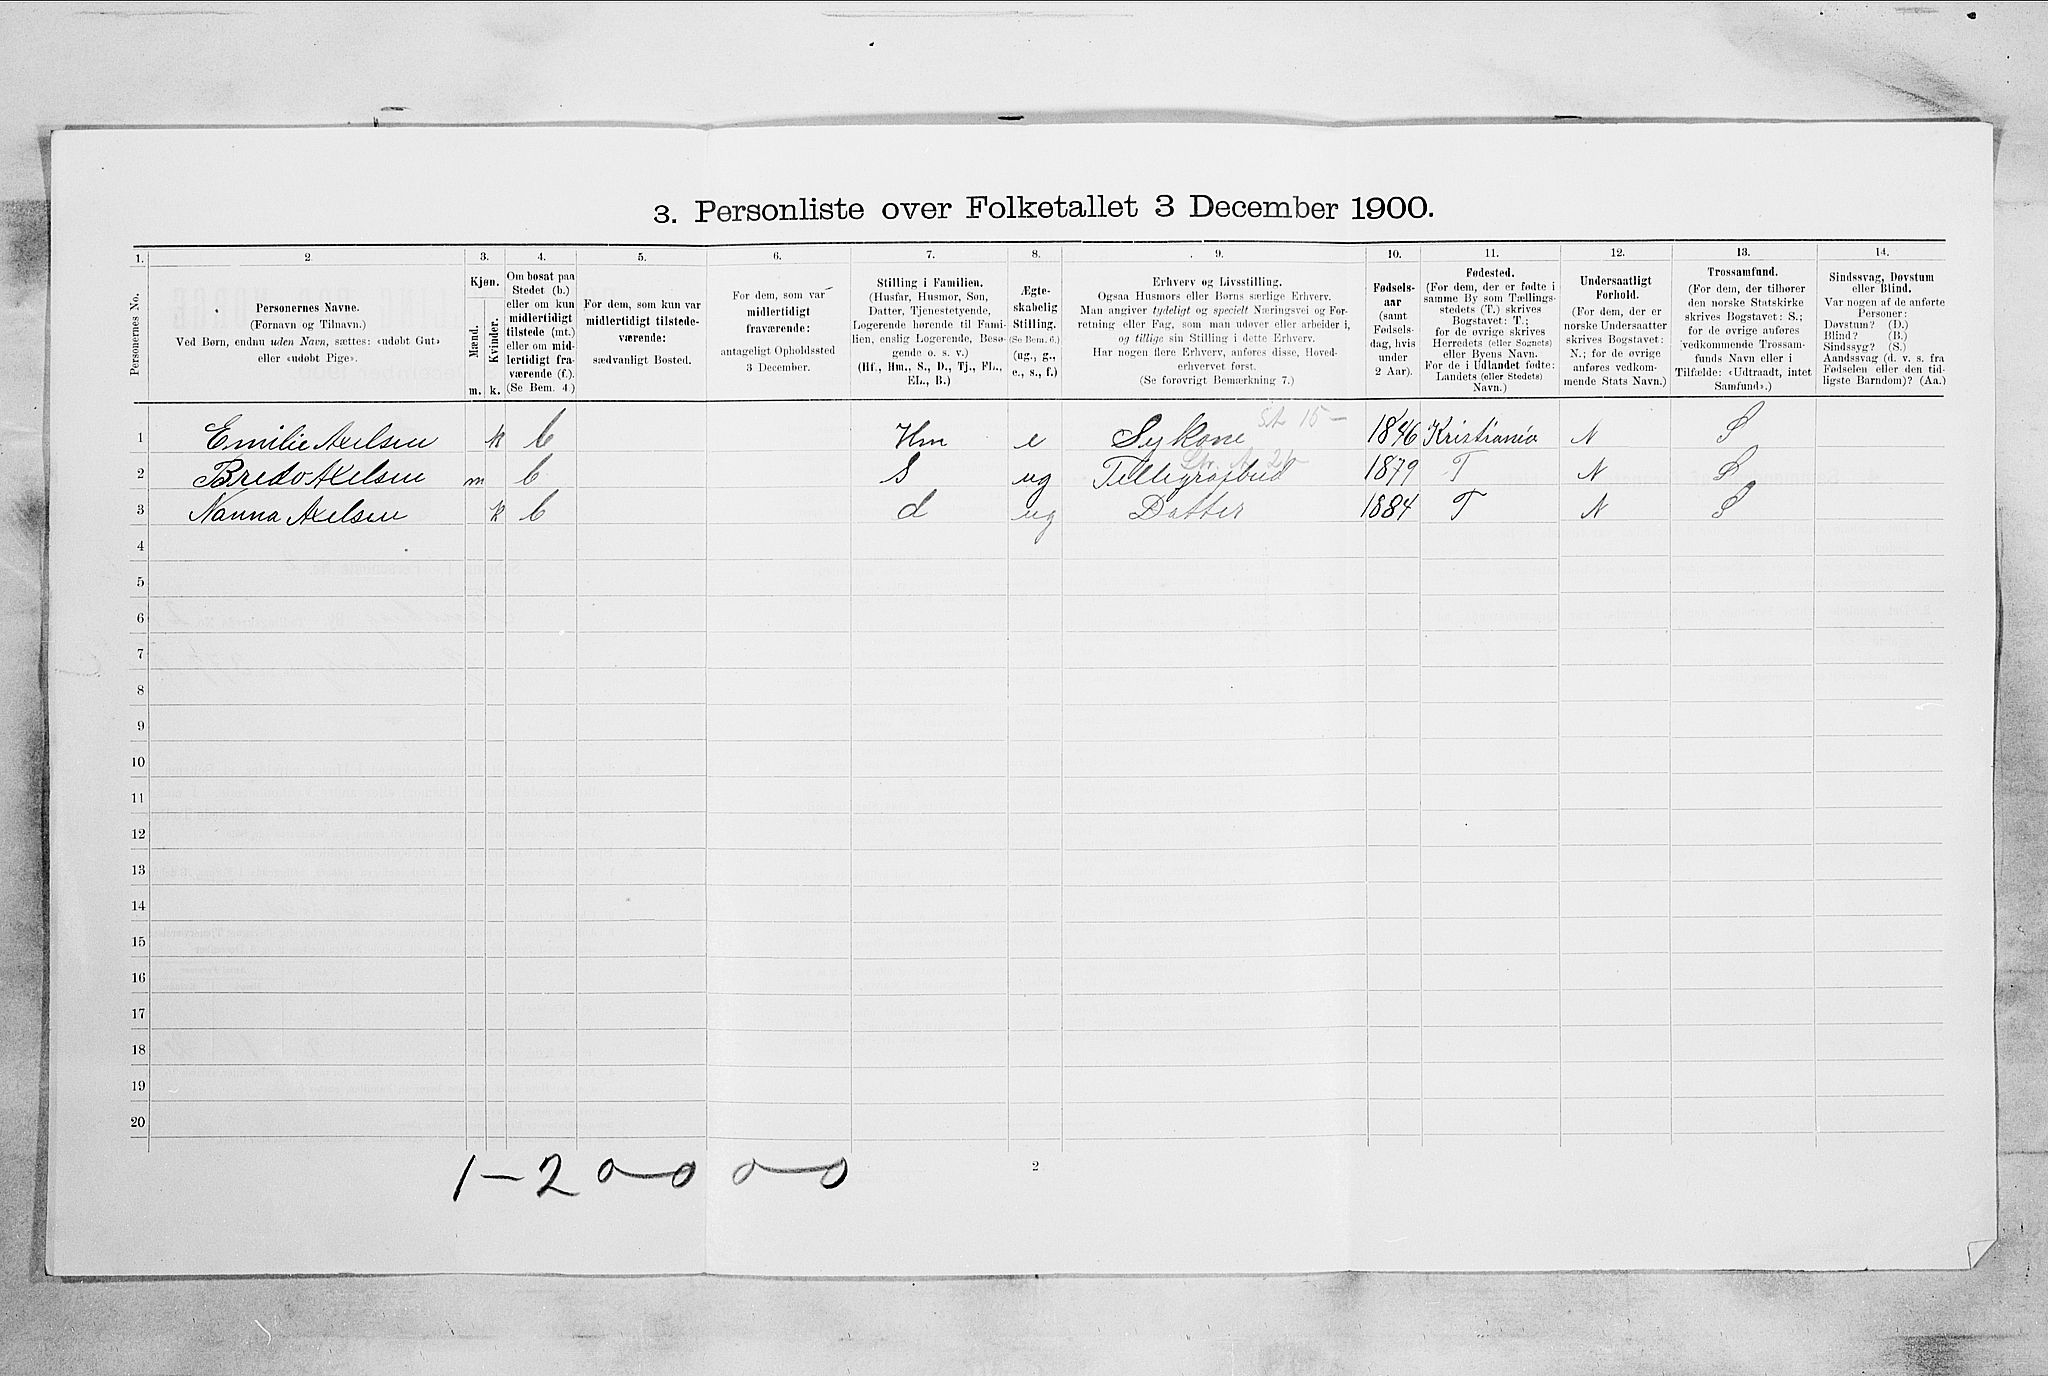 3. Personliste over Folketallet 3 December 1900.
1. 2 3. 4. 5. 6. 7. 8. 9. 10. 11. 12. 13. 14.
Personernes No.
Personernes Navne.
(Fornavn og Tilnavn.)
Ved Børn, endnu uden Navn, sættes: «udøbt Gut»
eller «udøbt Pige».
Kjøn.
Mænd.
Kvinder.
m. k.
Om bosat paa
Stedet (b.)
eller om kun
midlertidigt
tilstede (mt.)
eller om mid-
lertidigt fra-
værende (f.).
(Se Bem. 4.)
For dem, som kun var
midlertidigt tilstede-
værende:
sædvanligt Bosted.
For dem, som var
midlertidigt
fraværende:
antageligt Opholdssted
3 December.
Stilling i Familien.
(Husfar, Husmor, Søn,
Datter, Tjenestetyende,
Logerende hørende til Fami-
lien, enslig Logerende, Besø-
gende o. s. v.)
(Hf., Hm., S., D., Tj., FL.,
EL., B.)
Ægte-
skabelig
Stilling.
(Se Bem. 6.)
(ug., g.,
e., s., f.)
Erhverv og Livsstilling.
Ogsaa Husmors eller Børns særlige Erhverv.
Man angiver tydeligt og specielt Næringsvei og For-
retning eller Fag, som man udøver eller arbeider i,
og tillige sin Stilling i dette Erhverv.
Har nogen flere Erhverv, anføres disse, Hoved-
erhvervet først.
(Se forøvrigt Bemærkning 7.)
Fødsels-
aar
(samt
Fødsels-
dag, hvis
under
2 Aar).
Fødested.
(For dem, der er fødte i
samme By som Tællings-
stedets (T.) skrives
Bogstavet: T.;
for de øvrige skrives
Herredets (eller Sognets)
eller Byens Navn.
For de i Udlandet fødte:
Landets (eller Stedets)
Navn.)
Undersaatligt
Forhold.
(For dem, der er
norske Undersaatter
skrives Bogstavet:
N.; for de øvrige
anføres vedkom-
mende Stats Navn.)
Trossamfund.
(For dem, der tilhører
den norske Statskirke
skrives Bogstavet: S.;
for de øvrige anføres
vedkommende Trossam-
funds Navn eller i
Tilfælde: «Udtraadt, intet
Samfund».)
Sindssvag, Døvstum
eller Blind.
Var nogen af de anførte
Personer:
Døvstum? (D.)
Blind? (B.)
Sindssyg? (S.)
Aandssvag (d. v. s. fra
Fødselen eller den tid-
ligste Barndom)? (Aa.)
St 15 —
1 Emilie Axelsen k b Hm e Sykone 1846 Kristiania N S
2 Bredo Axelsen m b S ug Tellegrafbud 1879 T N S
3 Nanna Axelsen k b d ug Datter 1884 T N S
4
5
6
7
8
9
10
11
12
13
14
15
16
17
18
19
20
1 – 2 0 – 0 0 – 0
2